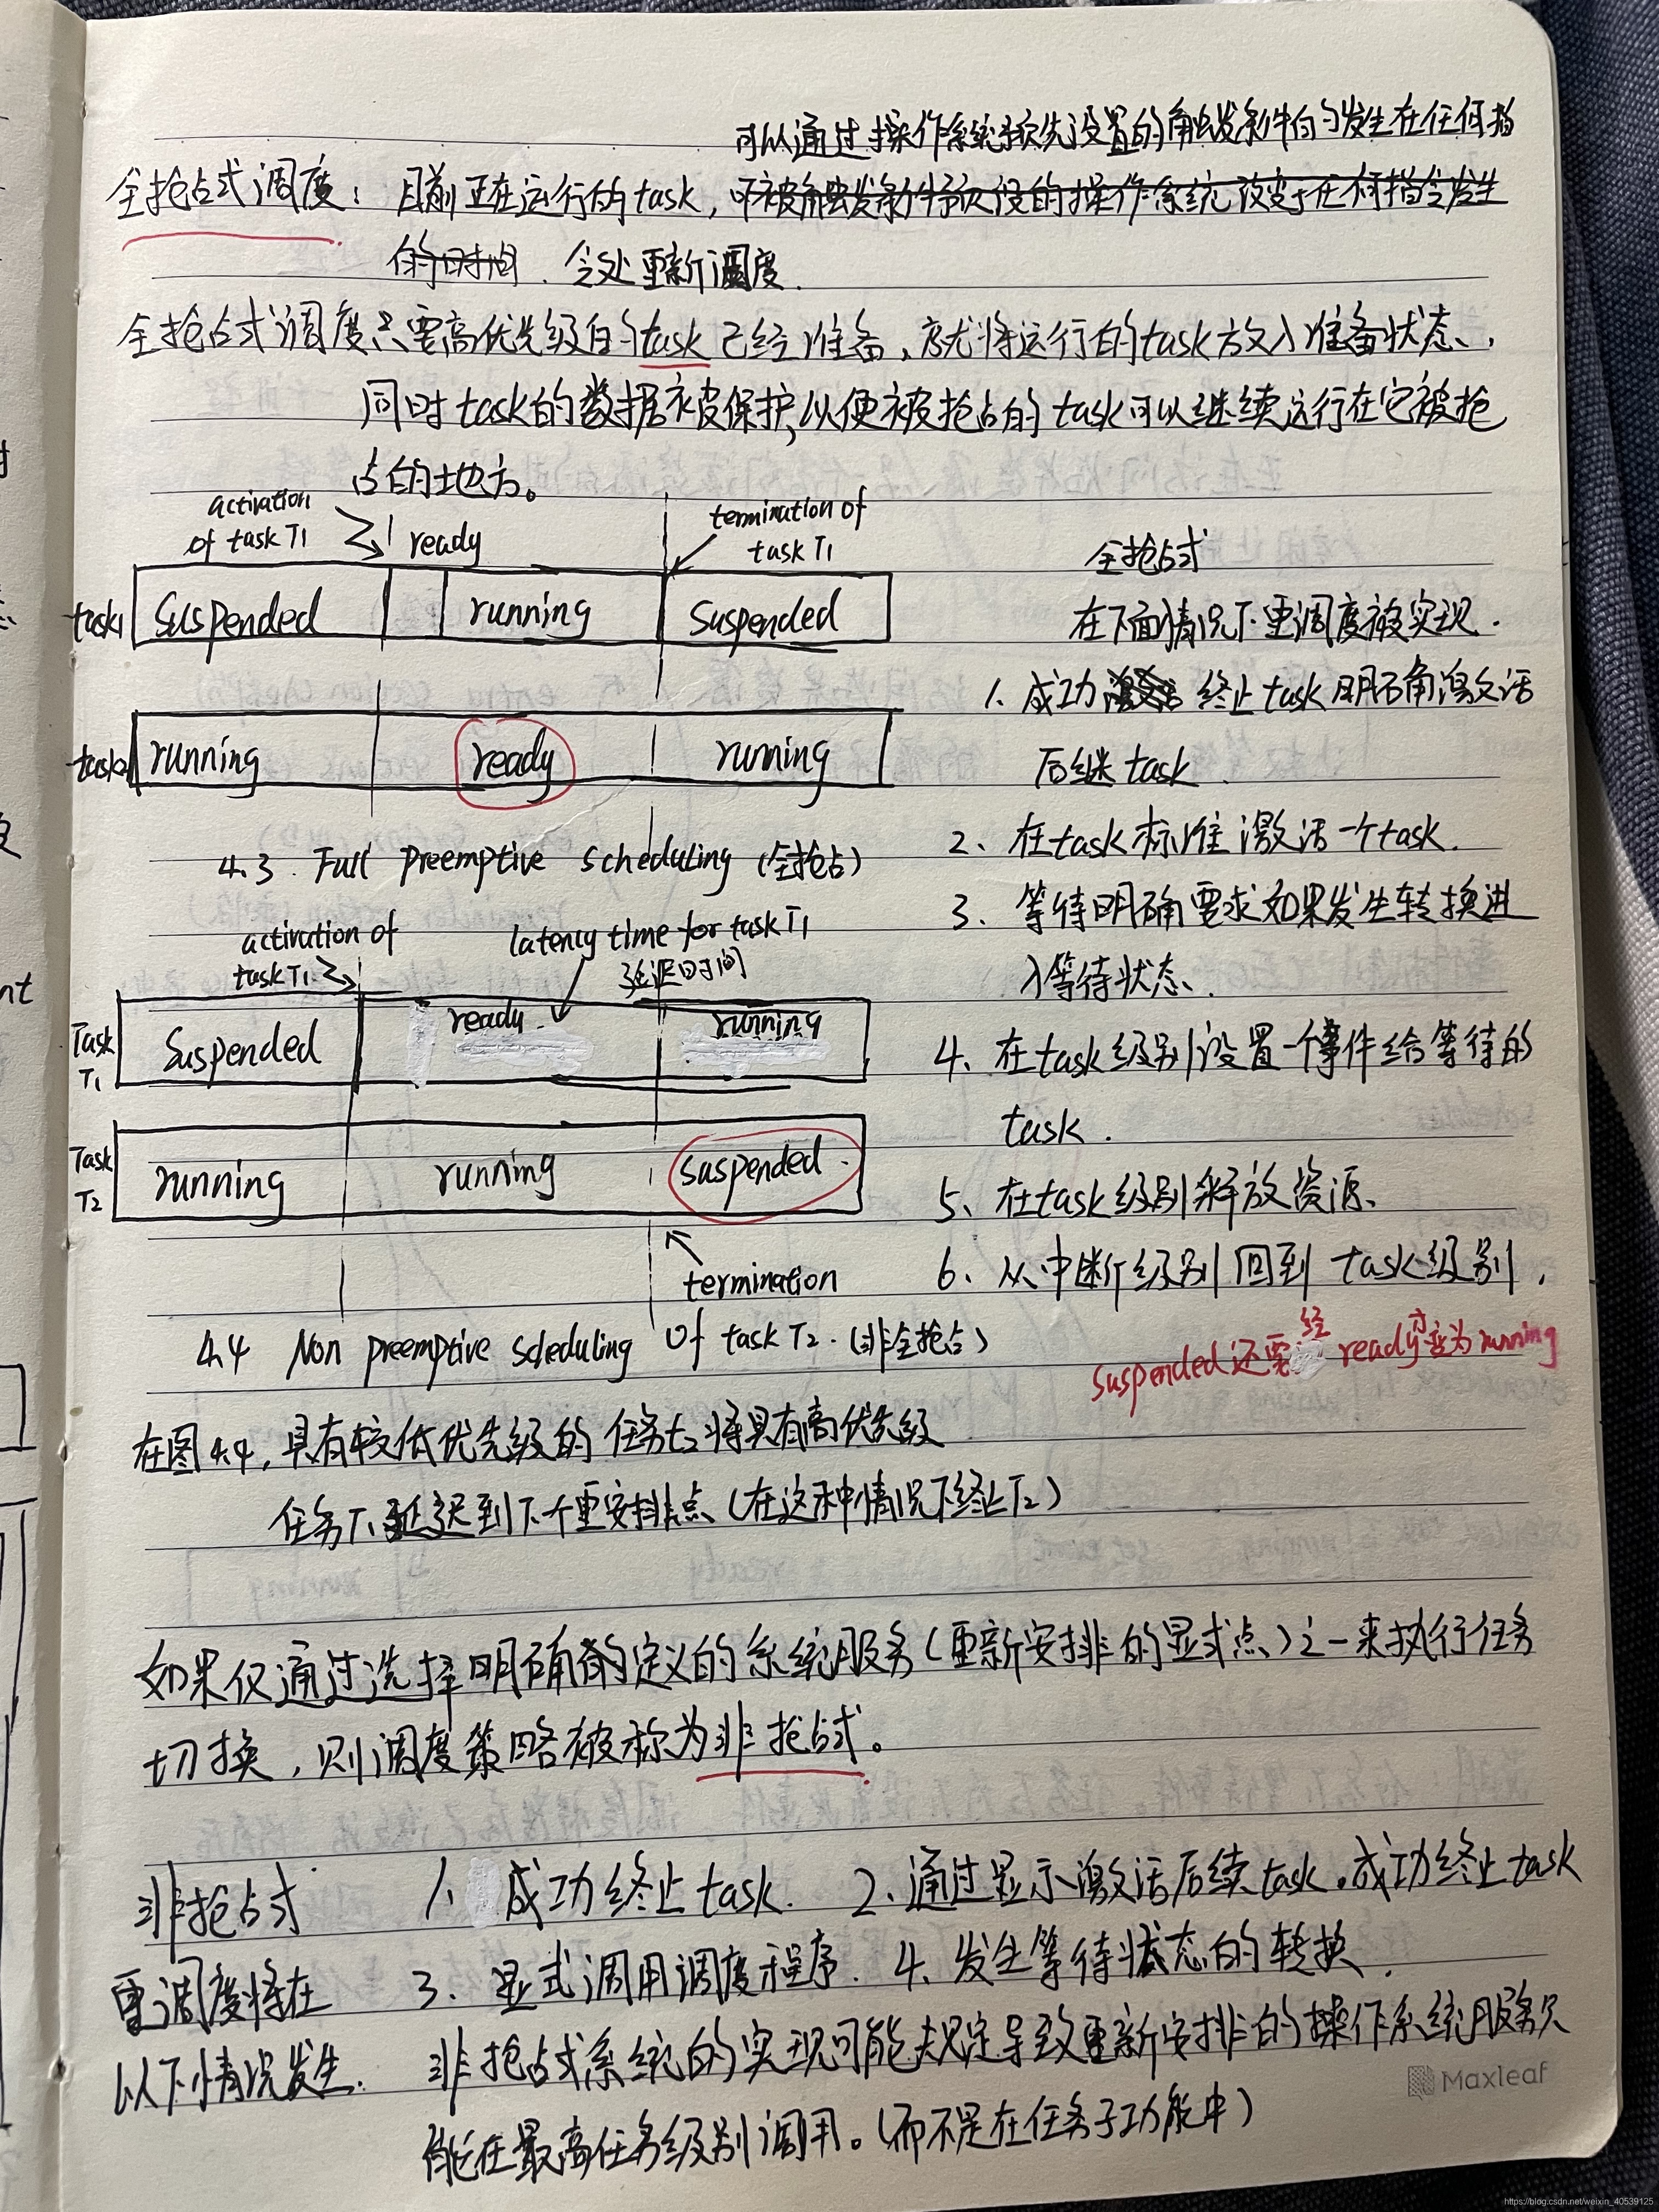 可以通过操作系统预先设置的触发条件的发生在任何指
全抢占式调度: 目前正在运行的task,
会处重新调度.
全抢占式调度只要高优先级的task已经准备,就将运行的task放入准备状态,
同时task的数据被保护,以便被抢占的task可以继续运行在它被抢
占的地方。
activation
of task T1
ready
termination of
task T1
task1
Suspended
running
Suspended
task2
running
ready
running
4.3 Full preemptive scheduling (全抢占)
全抢占式
在下面情况下重调度被实现.
1、成功 终止task明确激活
后继task
2、在task标准激活一个task.
3、等待明确要求如果发生转换进
入等待状态.
4、在task级别设置一个事件给等待的
task.
5、在task级别释放资源、
6、从中断级别回到task级别,
suspended还需经ready才变为running
activation of
task T1
latency time for task T1
延迟时间
Task
T1
Suspended
ready
running
Task
T2
running
running
suspended.
termination
of task T2. (非全抢占)
4.4 Non preemptive scheduling
在图4.4,具有较低优先级的任务t2将具有高优先级
任务T1延迟到下个重安排点(在这种情况下终止T2)
如果仅通过选择明确的定义的系统服务(重新安排的显式点)之一来执行任务
切换,则调度策略被称为非抢占式。
非抢占式
重调度将在
以下情况发生.
1、成功终止task. 2、通过显示激活后续task。成功终止task
3、显式调用调度程序. 4、发生等待状态的转换.
非抢占式系统的实现可能规定导致重新安排的操作系统服务只
能在最高任务级别调用。(而不是在任务子功能中)
Maxleaf
https://blog.csdn.net/weixin_40539125